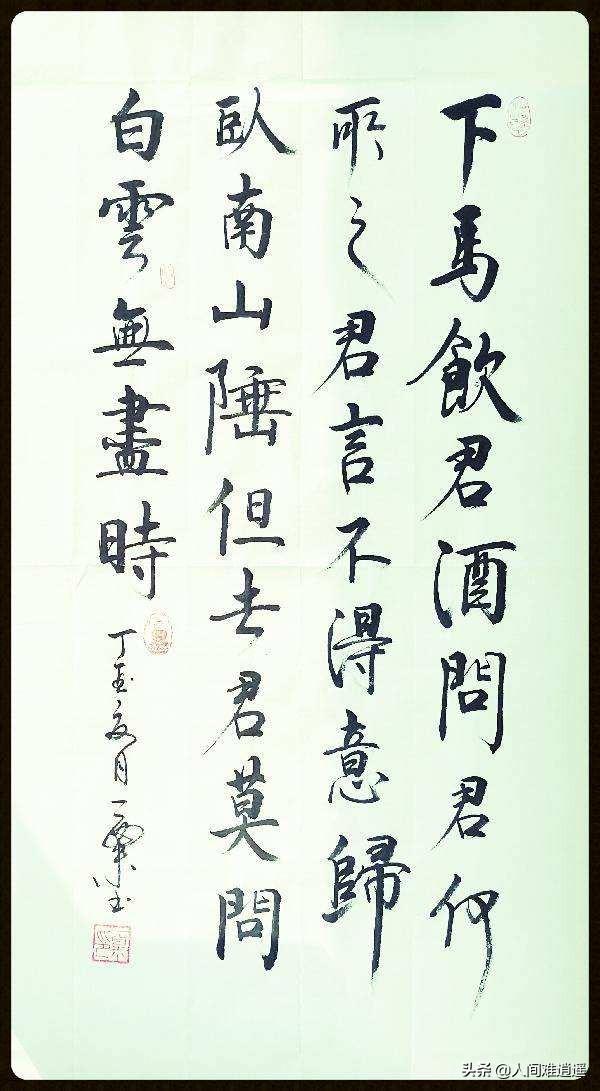 下馬飲君酒問君何
所之君言不得意歸
臥南山陲但去君莫問
白雲無盡時
丁酉夏月一粟书
头条 @人间难逍遥